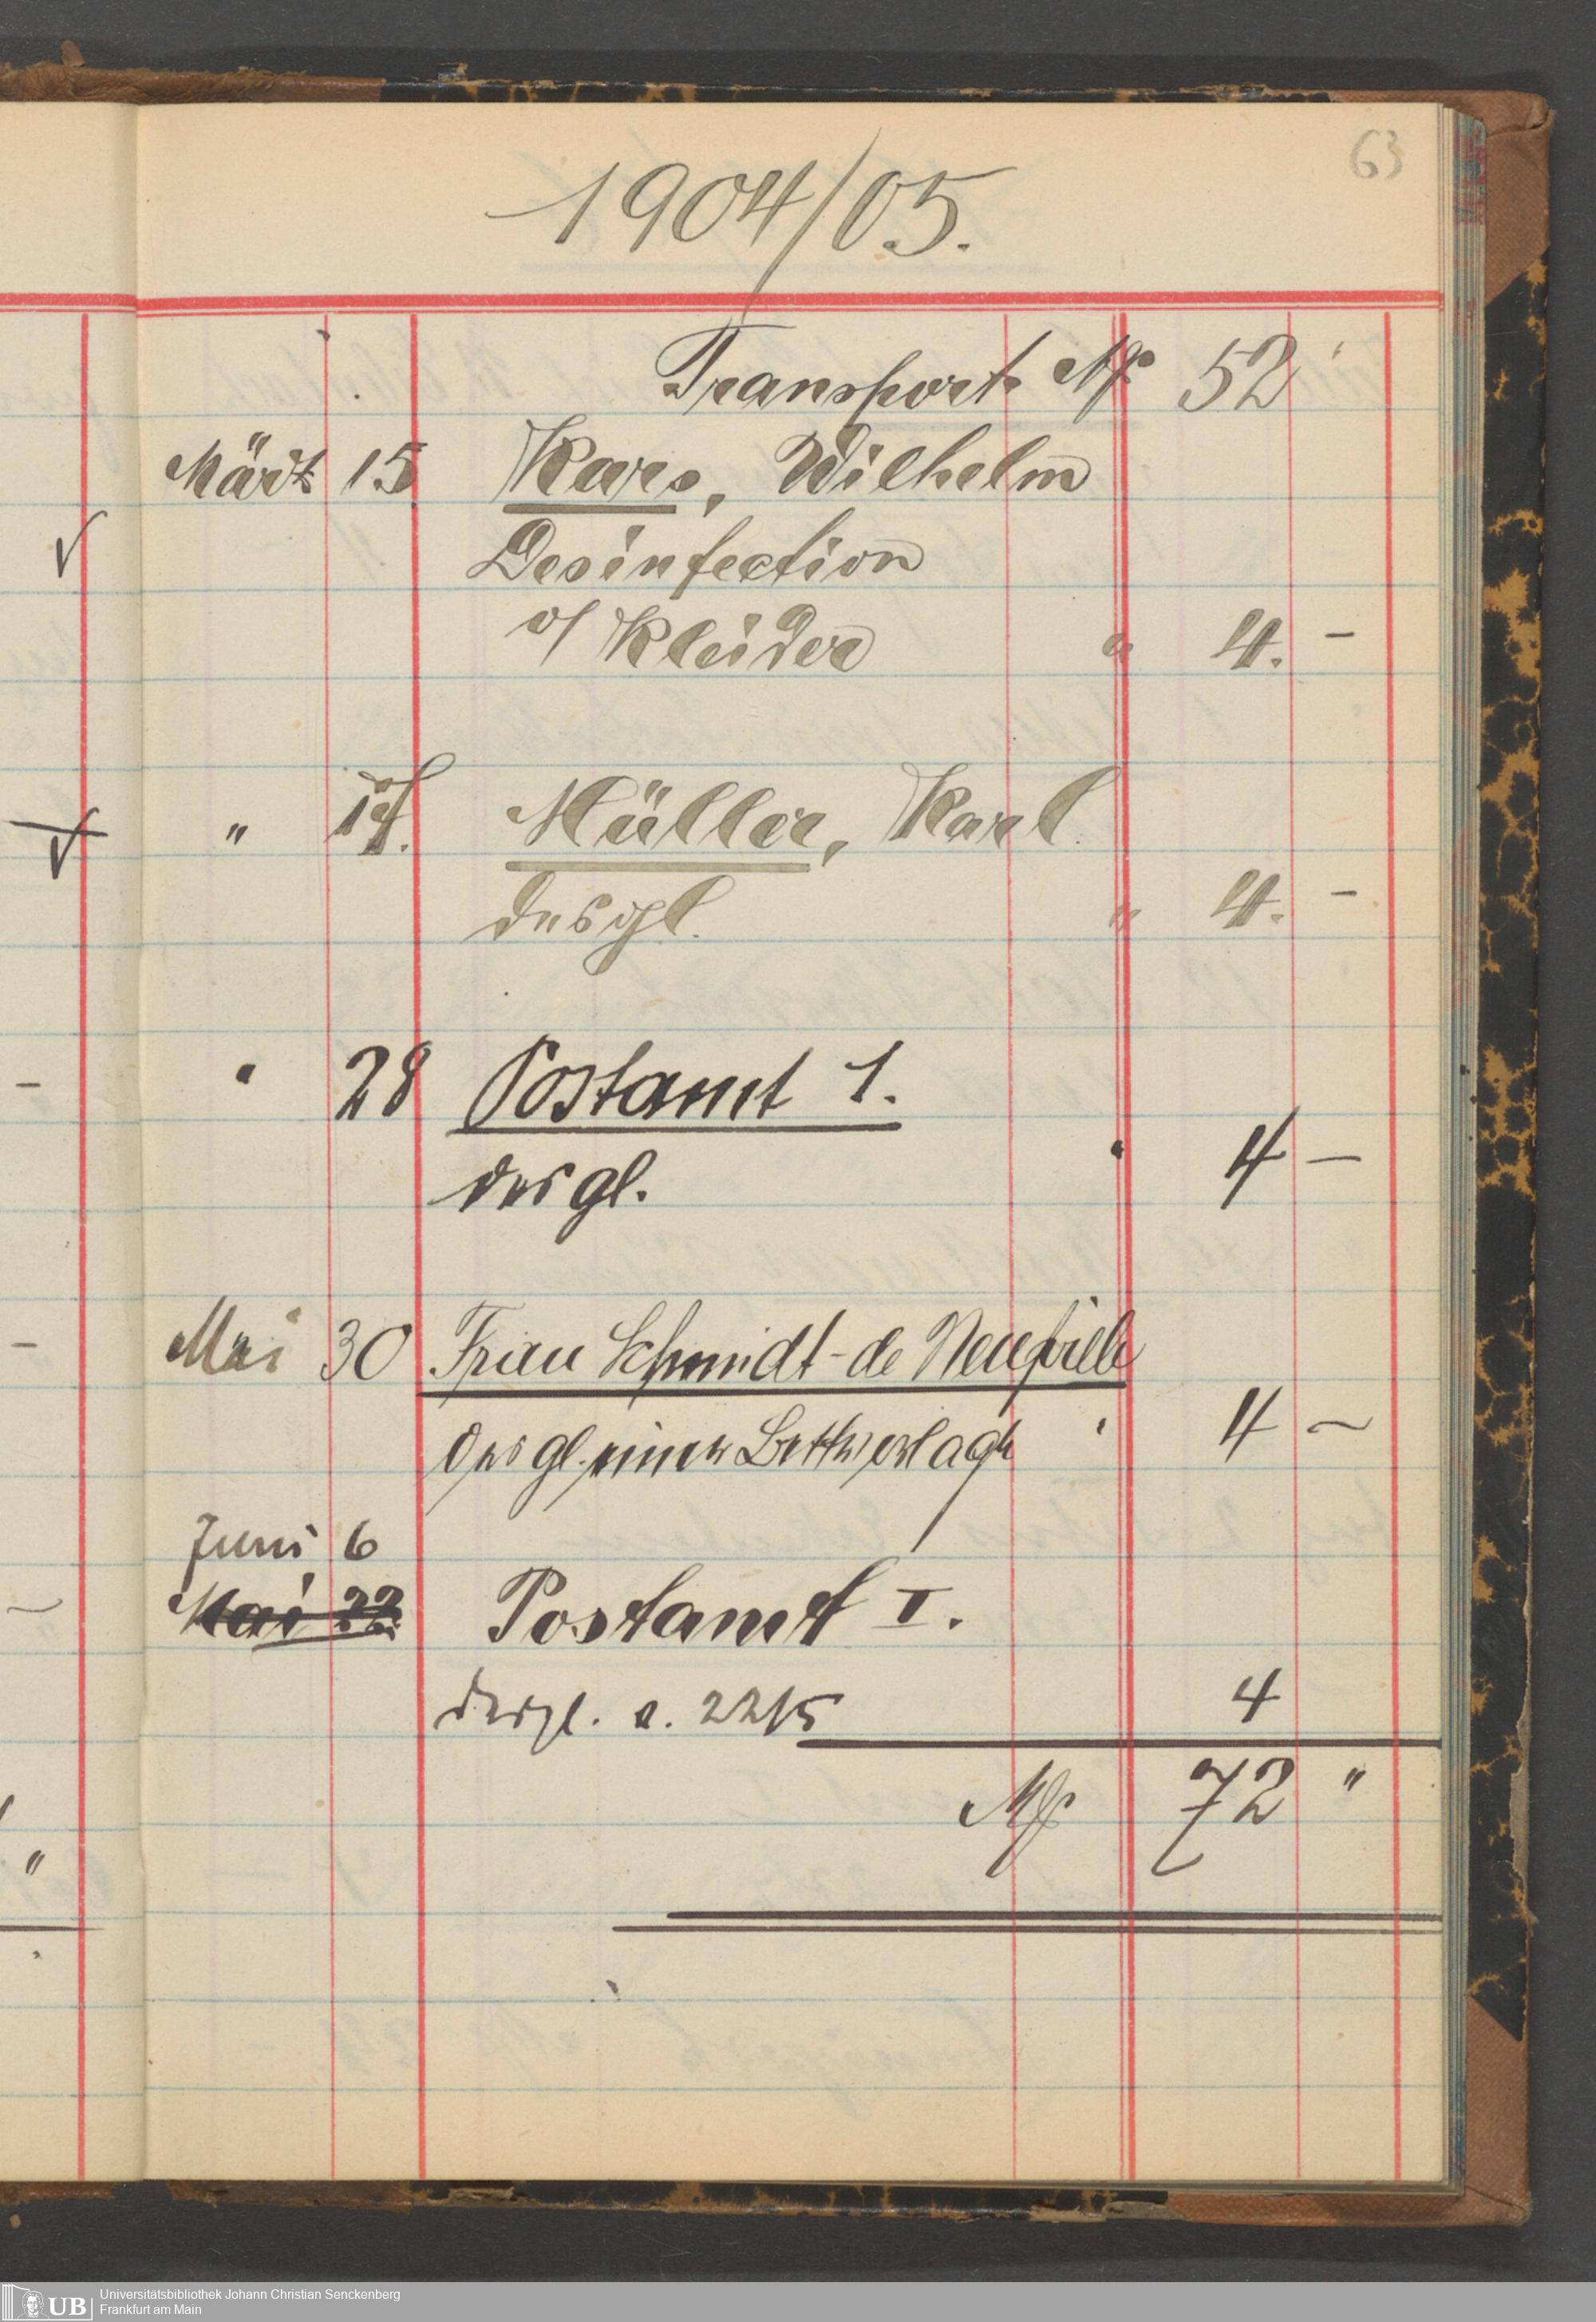 63
1904/05.
Transport. M 52 "
März 15 Kars, Wilhelm
Desinfection
v/ Kleider " 4. -
" 17. Müller, Karl.
desgl. " 4. -
" 28 Postamt 1.
desgl. " 4 -
Mai 30 Frau Schmidt-de Neufville
desgl. einer " 4 -
Juni 6
Mai 22. Postamt I.
desgl. v. 22/5 4
M 72 "
UB Universitätsbibliothek Johann Christian Senckenberg
Frankfurt am Main